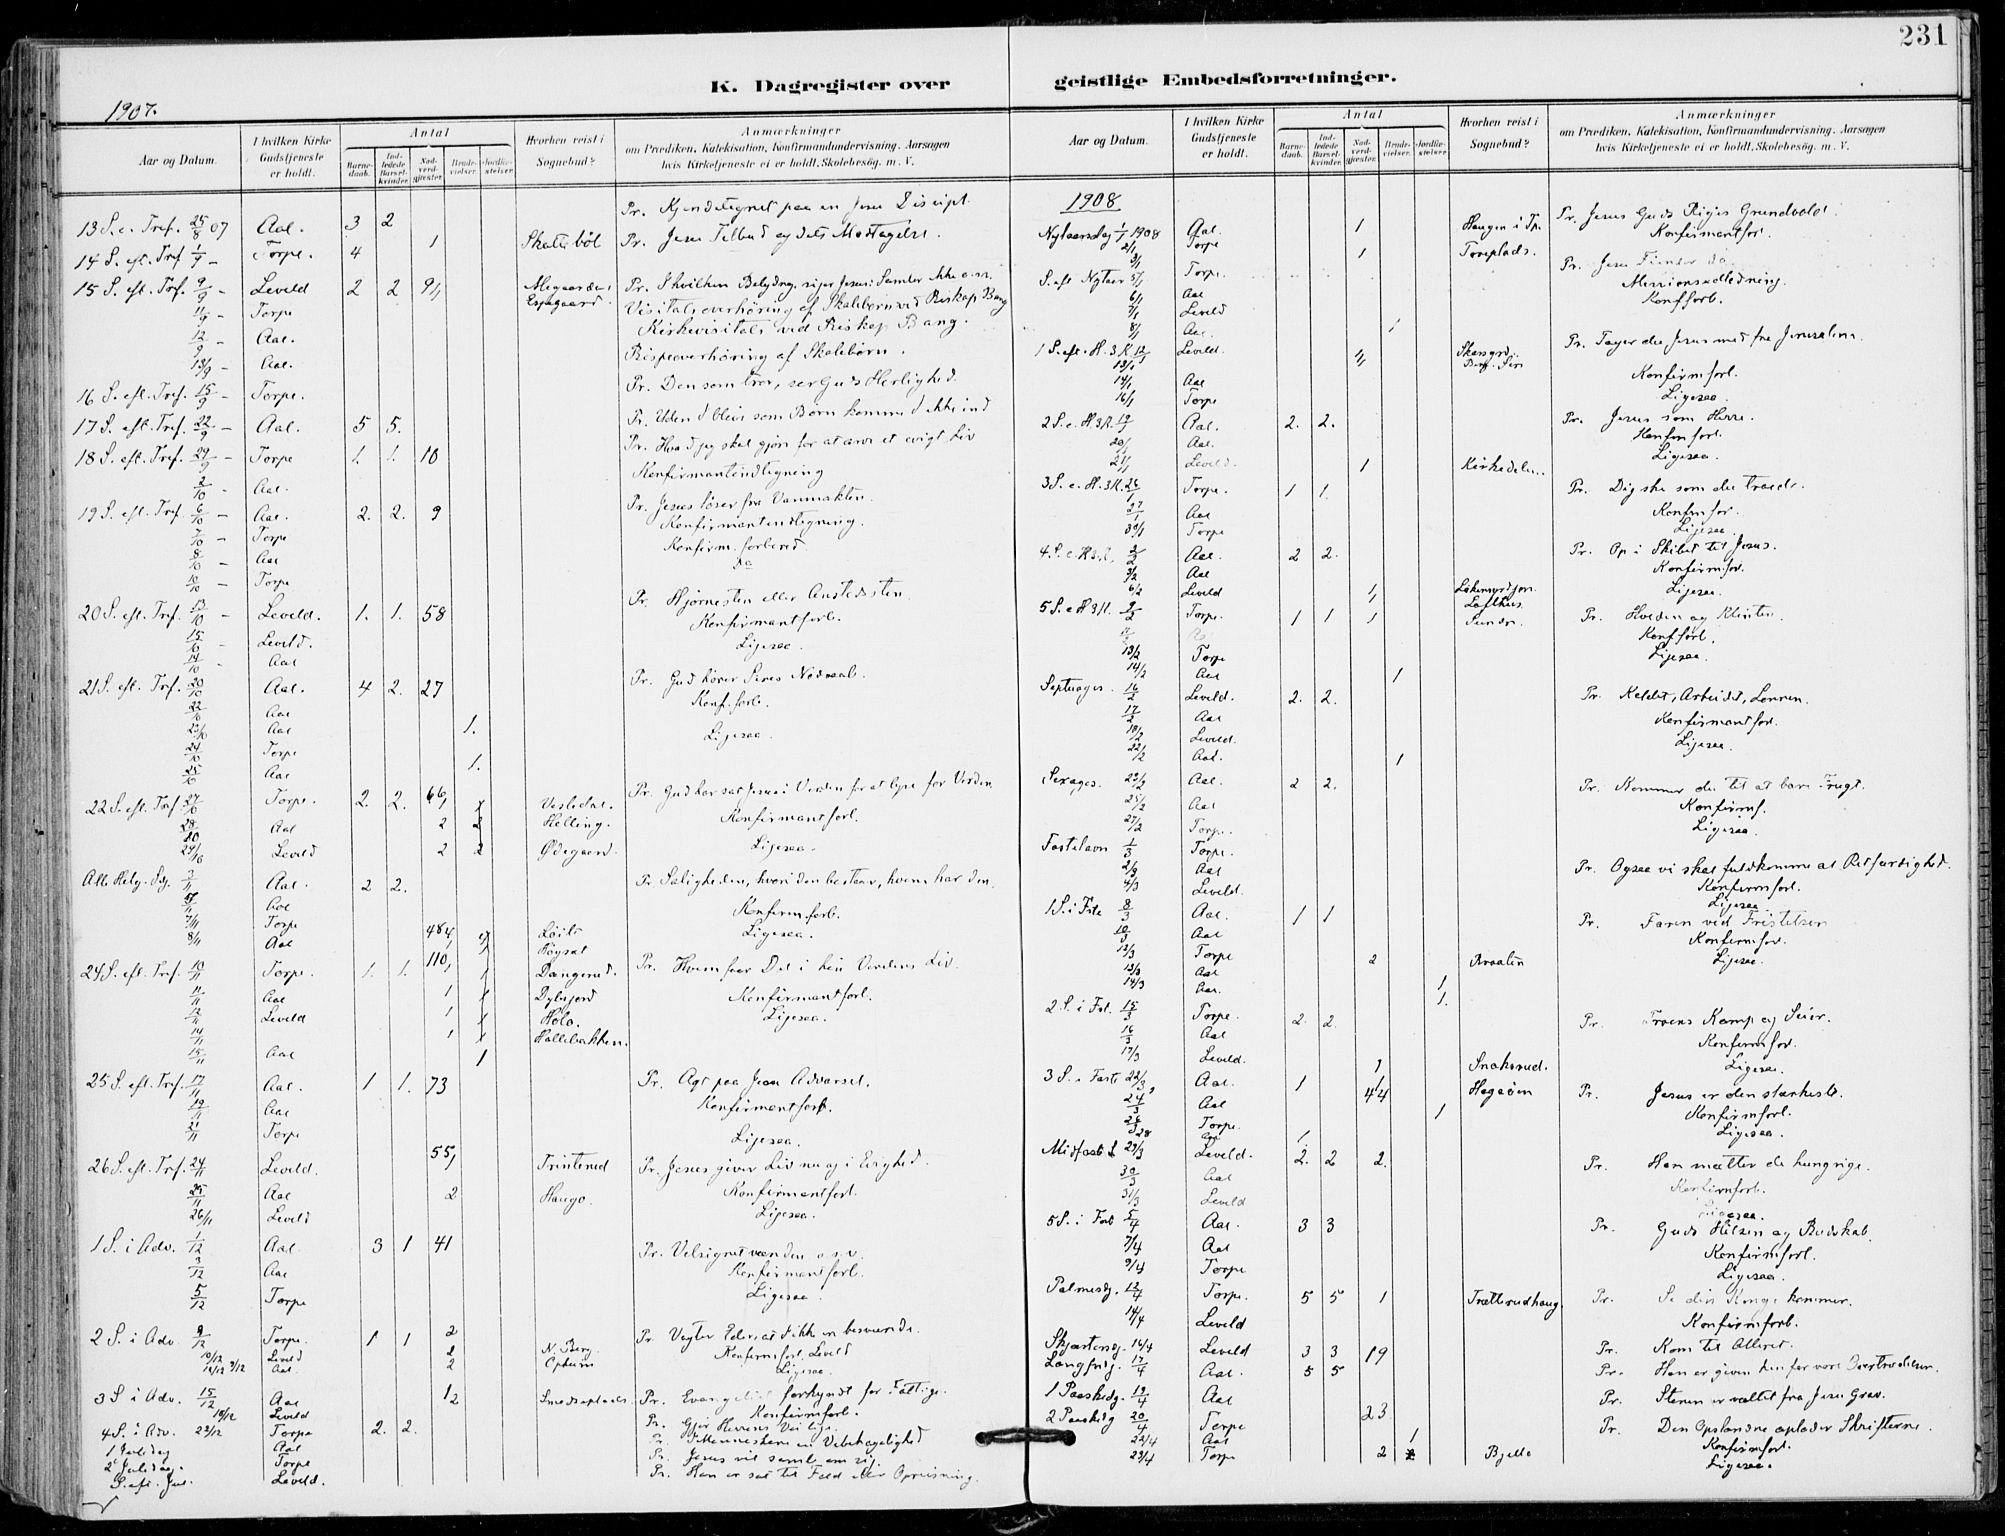 231
K. Dagregister over geistlige Embedsforretninger.
1907.
Aar og Datum.
I hvilken Kirke Gudstjeneste er holdt.
Antal
Barnedaab.
Indledede Barselkvinder.
Nadverdgjester.
Brudevielser.
Jordfæstelser.
Hvorhen reist i Sognebud?
Anmærkninger
om Prædiken, Katekisation, Konfirmandundervisning. Aarsagen
hvis Kirketjeneste ei er holdt. Skolebesøg. m. V.
13 S. e. Tref. 25/8 07 Aal. 3 2 Pr. Kjendetegnet paa en Jesu Discipel.
14 S. eft. Tref 1/9 - Torpe. 4 1 Skaterböl Pr. Jesu Tilbud og dets Modtagelse.
15 S. eft. Tref. 9/9 - Leveld 2 2 Espegaard Pr. I hvilken Betydng. siger Jesus: Samler ikke o.s.v.
11/9 - Torpe Visitatsoverhöring af Skolebørn ved Biskop Bang
12/9 - Aal. Kirkevisitats ved Biskop Bang.
13/9 - Aal. Bispeoverhöring af Skolebörn.
16 S. eft. Tref. 15/9 - Torpe. Pr. Den som tror, ser Guds Herlighed.
17 S. eft. Tref. 22/9 - Aal. 5 5. Pr. Uden I blive som Børn komme I ikke ind
18 S. eft. Tref. 29/9 - Torpe 1. 1. 10 Pr. Hvad jeg skal gjøre for at arve et evigt Liv
2/10 - Aal. Konfirmantindtegning
19 S. eft. Tref. 6/10 - Aal. 2. 2. 9 Pr. Jesus løser fra Vanmakten.
7/10 - Torpe Konfirmantindtegning.
8/10 - Aal Konfirm. forbered.
10/10 - Torpe do
20 S. eft. Tref. 13/10 - Leveld. 1. 1. 58 Pr. Hjørnesten eller Anstødssten.
15/10 - Leveld. Konfirmantforb.
14/10 - Aal Ligesaa.
21 S. eft. Tref. 20/10 Aal. 4 2. 27 Pr. Gud hører Sines Nødraab.
22/10 Aal Konf. forb.
23/10 Aal 1. Ligesaa.
24/10 Torpe
25/10 Aal 1.
22 S. eft. Tref 27/10 Torpe. 2. 2. 66, Vesledal. Pr. Gud har sat Jesus i Verden for at lyse for Verden
28/10 Aal 2 2 Helling. Konfirmantforb.
29/10 Leveld 2 2 Ødegaard. Ligesaa.
Alle Helg. Sg. 3/11 Aal. 2 2. Pr. Saligheden, hvori den bestaar, hvem har den.
Aal Konfirmforb.
7/11 Torpe Ligesaa.
8/11 Aal Høgsat
24 S. eft. Tref. 10/11 Torpe. 1. 1. 110, 1 Dangerud. Pr. Hvem faar Del i hin Verdens Liv.
11/11 Aal 1 1 Konfirmantforb.
12/11 Leveld 1 1 Holo. Ligesaa.
14/11 1 1 Hallebakken.
15/11 Aal 1
25 S. eft. Tref. 17/11 Aal. 1 1. 73 Pr. Agt paa Jesu Advarsel.
19/11 Aal Konfirmantforb.
21/11 Torpe Ligesaa.
26 S. eft. Tref. 24/11 Leveld. 55, Trinterud Pr. Jesus giver Liv nu og i Evighed.
25/11 Aal 2 Haugo. Konfirmantforb.
26/11 Leveld Ligesaa.
1 S. i Adv. 1/12 Aal 3 1 41 Pr. Velsignet være den o.s.v.
3/12 Aal Konfirmantforb.
5/12 Torpe Ligesaa.
2 S. i Adv. 8/12 Torpe. 1 1 2 Pr. Vogter Eder at I ikke besværede.
10/12 Leveld 2 N. Berg. Konfirmforb. Leveld
Aal. 2 Opheim Ligesaa
3 S i Adv. 15/12 Aal 12 Smedsplads Pr. Evangeliet forkyndt for Fattige.
19/12 Leveld Konfirmforb.
4 S. i Adv. 22/12 Torpe 2. 2. Pr. Gjør Herrens Vei lige.
1 Juledag Aal Pr. I Menneskene en Velbehagelighed
2 Juledag. Torpe Pr. Jesus vil samle om sig.
S. eft. Jul. Leveld. Pr. Han er sat til Fald eller Opreisning.
Aar og Datum.
I hvilken Kirke Gudstjeneste er holdt.
Antal
Barnedaab.
Indledede Barselkvinder.
Nadverdgjester.
Brudevielser.
Jordfæstelser.
Hvorhen reist i Sognebud?
Anmærkninger
om Prædiken, Katekisation, Konfirmandundervisning. Aarsagen
hvis Kirketjeneste ei er holdt. Skolebesøg. m. V.
1908
Nytaarsdag 1/1 1908 Aal. 1 Haugen i Tp. Pr. Jesus Guds Riges Grundvold.
2/1 Torpe 1 Toreplads. Konfirmantfor.
3/1 Torpe.
S. eft Nytaar 5/1 Aal Pr. Jesu Fiender
6/1 Leveld Missionsveiledning.
7/1 Konfforb.
8/1 Aal. 1
1 S. eft. H. 3 K. 12/1 Leveld. Skarsgrd. Pr. Tager du Jesus med fra Jerusalem.
13/1 Aal Konfirmforb.
14/1 Torpe Ligesaa.
16/1
2 S. e. H. 3 K. 19/1 Aal. 2. 2. Pr. Jesus som Herre.
20/1 Aal. Konfirmforb.
21/1 Leveld. 1 Kirkedelen. Ligesaa.
3 S. e. H. 3 K. 26/1 Torpe. 1 1. Pr. Dig ske som du troede.
27/1 Aal Konfirmfor.
30/1 Torpe Ligesaa.
4 S. e. H 3 K. 2/2 Aal. 2 2. Pr. Op i Skibet til Jesus.
3/2 Aal Konfirmfor.
6/2 Leveld Ligesaa.
5 S. e H 3 K. 9/2 Torpe. 1 1 1 Lofthus Sundre Pr. Hveden og Klinten
Konfforb.
13/2 Torpe Ligesaa.
14/2 Aal 1
Septuages. 16/2 Leveld. 2. 2. Pr. Kaldet, Arbeidet, Lønnen.
17/2 Aal Konfirmantfor.
18/2 Leveld. Ligesaa.
22/2 Aal. 1
Sexages. 23/2 Aal. 2 2. Pr. Kommer du til at bære Frugt.
25/2 Aal Konfirmf.
27/2 Torpe. Ligesaa.
Fastelavn 1/3 Torpe. Pr. Ogsaa vi skal fuldkomme al Retfærdighed.
2/3 Aal Konfirmforb.
4/3 Leveld. Ligesaa
1 S. i Faste 8/3 Aal. 1 1 Pr. Faren ved Fristelser
10/3 Aal Konfirmfor.
12/3 Torpe 2 Braaten Ligesaa.
13/3 Aal 1
14/3 Aal. 1.
2 S. i Fst. 15/3 Torpe. 2. 2. Pr. Troens Kamp og Seier.
16/3 Aal Konfirmfor.
17/3 Leveld. 1 Snakerud. Ligesaa.
3 S. i Faste 22/3 Aal. 1 44 Hagaöen Pr. Jesus er den stærkeste.
24/3 Aal 1 Konfirmforb.
26/3 Torpe. Ligesaa.
28 Aal 1
Midfaste S 29/3 Leveld. 2. 2 2. Pr. Han mætter de hungrige.
30/3 Aal Konfirmforb.
31/3 Leveld Ligesaa.
5 S. i Fast 5/4 Aal. 3 3 Pr. Guds Hilsen og Budskab.
7/4 Aal Konfirmforb.
9/4 Torpe Ligesaa.
Palmesdg. 12/4 Torpe. 5 5 1 Trætterudhaug. Pr. Se din Konge kommer.
14/4 Leveld Konfirmforb.
Skjærtorsdg. 16/4 Leveld 3 3 19 Pr. Kom til Alteret.
Langfrdg. 17/4 Aal. 5 5 Pr. Han er given hen for vore Overtrædelser.
1 Paaskedg. 19/4 Aal Pr. Stenen er væltet fra Jesu Grav.
2 Paaskedg 20/4 Torpe 23 Pr. Den Opstandne oplader Skrifterne.
22/4 Aal 1 Konfirmforb.
23/4 Torpe 2 Bjelle Ligesaa.